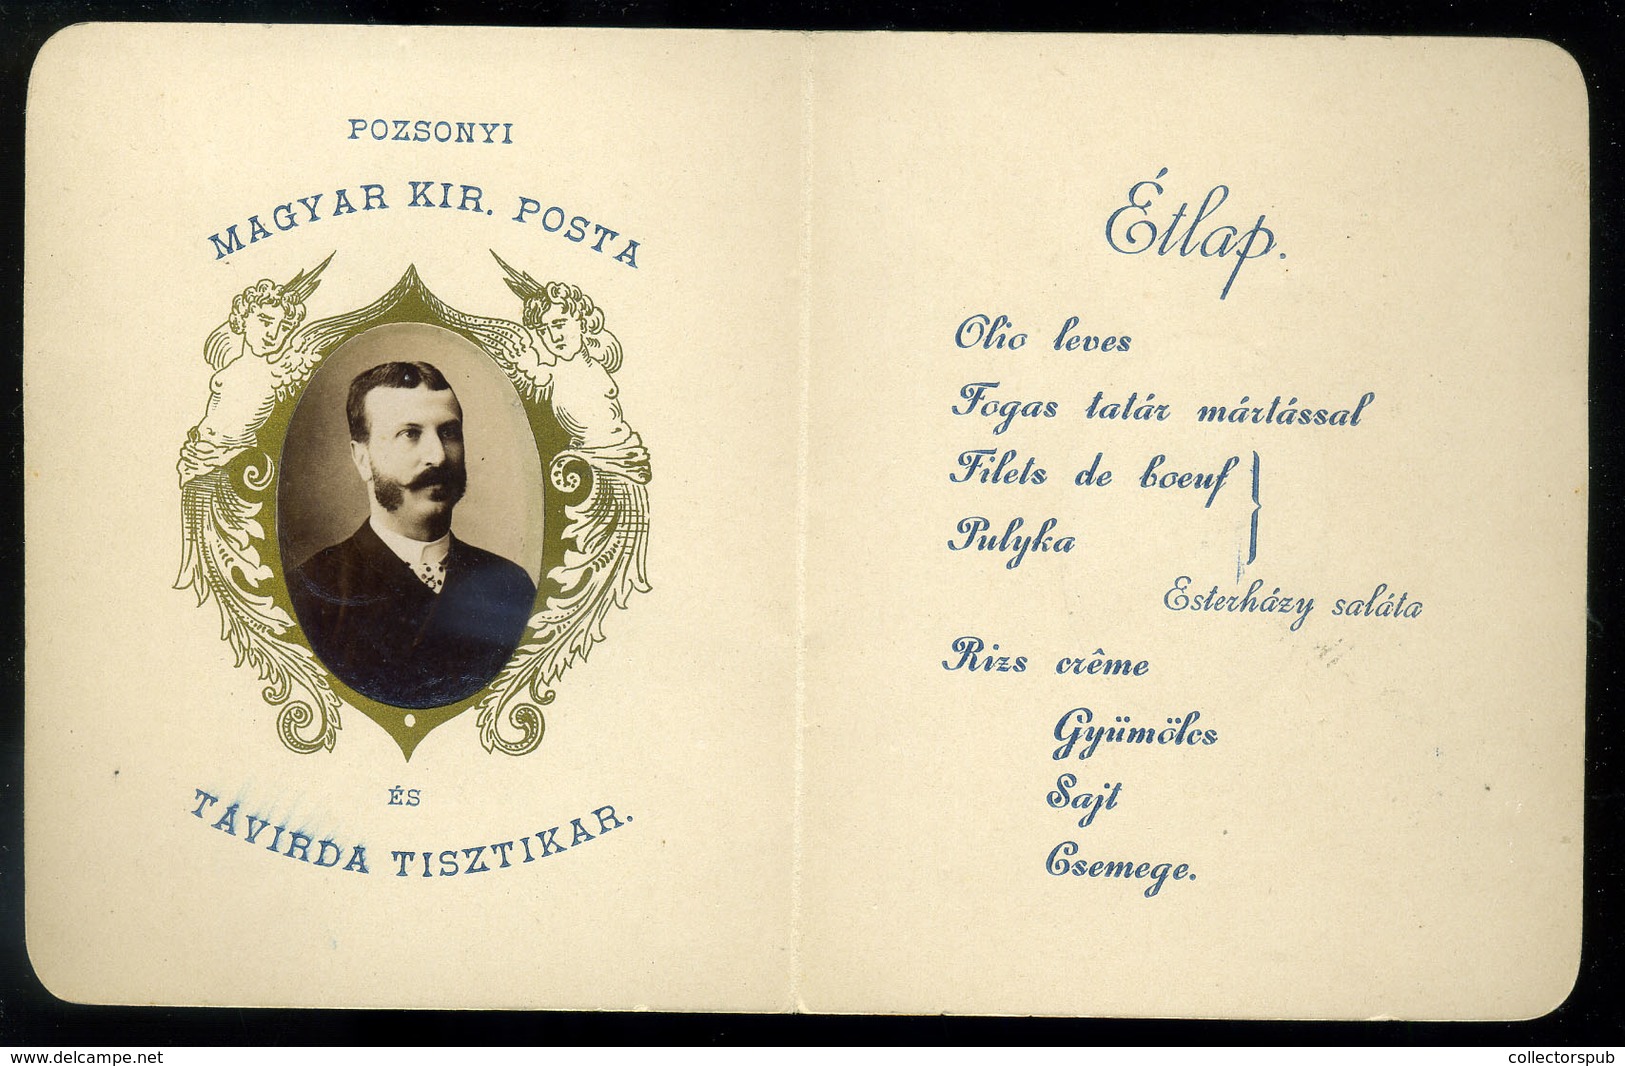 POZSONYI
MAGYAR KIR. POSTA
ÉS
TÁVIRDA TISZTIKAR.
Étlap.
Olio leves
Fogas tatár mártással
Filets de boeuf
Pulyka
Esterházy saláta
Rizs crême
Gyümölcs
Sajt
Csemege.
www.delcampe.net
collectorspub